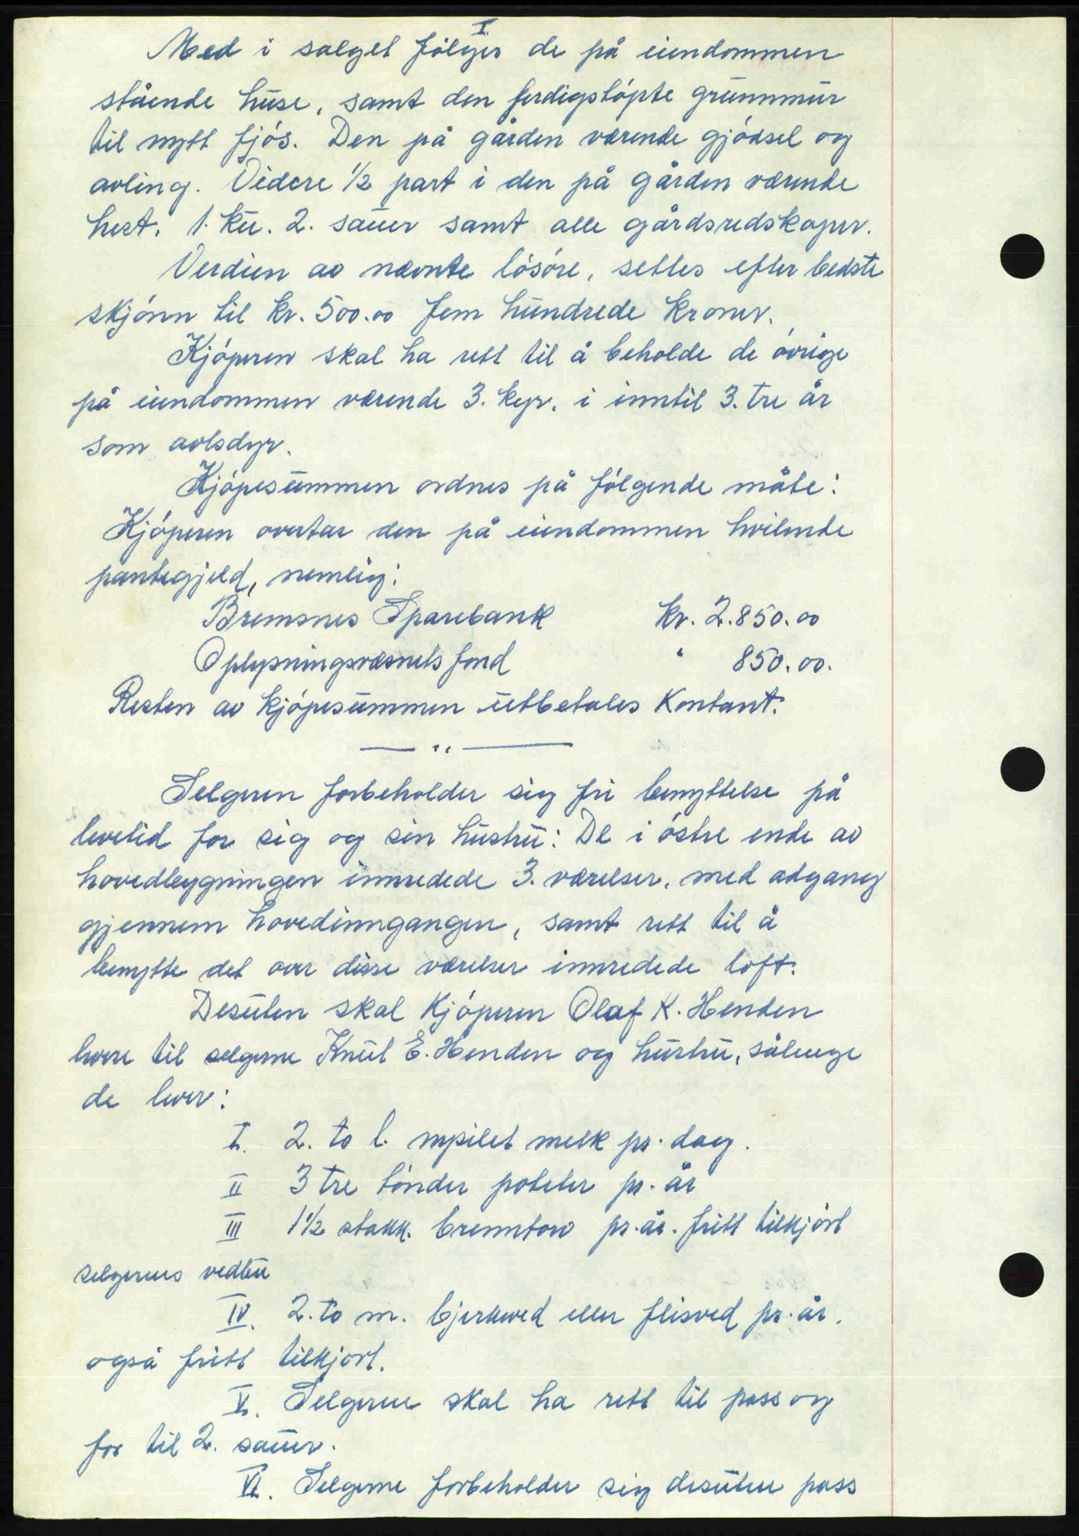 I
Med i salget følger de på eiendommen
stående huse, samt den ferdigstøpte grunnmur
til nytt fjøs. Den på gården værende gjødsel og
avling. Videre 1/2 part i den på gården værende
hest. 1. ku. 2. sauer samt alle gårdsredskaper.
Verdien av nævnte løsøre, settes efter bedste
skjønn til kr. 500.00 fem hundrede kroner.
Kjøperen skal ha rett til å beholde de øvrige
på eiendommen værende 3. kyr. i inntil 3. tre år
som avlsdyr.
Kjøpesummen ordnes på følgende måte:
Kjøperen overtar den på eiendommen hvilende
pantegjeld, nemlig:
Bremsnes Sparebank kr. 2.850.00
Oplysningsvæsnets fond " 850.00.
Resten av kjøpesummen utbetales kontant.
— " —
Selgeren forbeholder sig fri benyttelse på
levetid for sig og sin hustru: De i østre ende av
hovedbygningen innredede 3. værelser, med adgang
gjennem hovedinngangen, samt rett til å
benytte det over disse værelser innredede loft.
Desuten skal kjøperen Olaf K. Henden
levere til selgerne Knut E. Henden og hustru, sålenge
de lever:
I. 2. to l. nysilet melk pr. dag.
II 3 tre tønder poteter pr. år
III 1 1/2 stakk. brenntorv pr. år. fritt tilkjørt
selgerens vedbu
IV. 2. to m. bjerkeved eller flisved pr. år.
også fritt tilkjørt.
V. Selgerne skal ha rett til pass og
for til 2. sauer.
VI. Selgerne forbeholder sig desuten pass